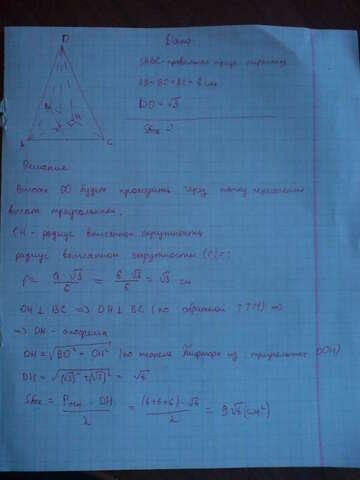 D
Дано:
DABC - правильная треуг. пирамида
AB=BC=AC=6 см
DO=√3
Sбок -?
A
C
Решение
Высота DO будет проходить через точку пересечения
высот треугольника.
OH - радиус вписанной окружности
радиус вписанной окружности (r)=
r= a·√3/6 = 6·√3/6 = √3 см
OH⊥BC => DH⊥BC (по обратной ТТП) =>
=> DH - апофема
DH=√DO²+OH² (по теореме Пифагора из треугольника DOH)
DH=√(√3)²+(√3)² = √6
Sбок = Pосн · DH/2 = (6+6+6)·√6/2 = 9√6 (см²)